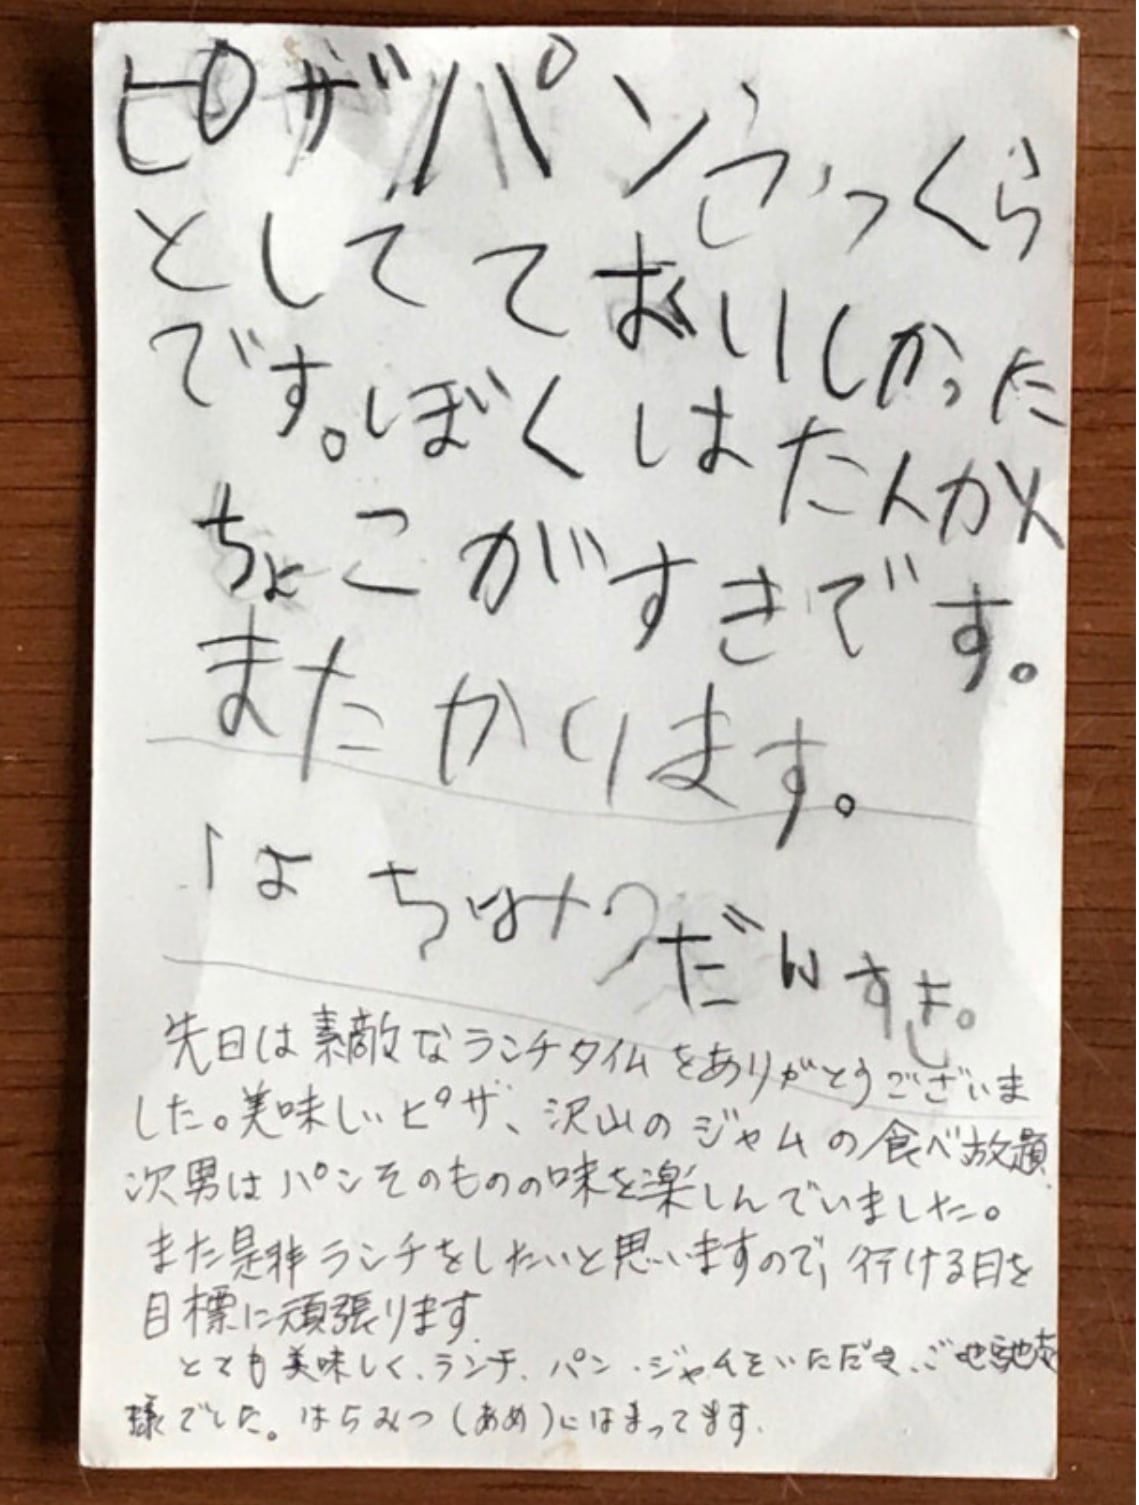 ピザパンふっくら
としてておいしかった
です。ぼくはたんかん
ちょこがすきです。
またかります。
はちみつだいすき。
先日は素敵なランチタイムをありがとうございま
した。美味しいピザ、沢山のジャムの食べ放題
次男はパンそのものの味を楽しんでいました。
また是非ランチをしたいと思いますので、行ける日を
目標に頑張ります。
とても美味しく、ランチ、パン・ジャムをいただき、ご馳走
様でした。はちみつ(あめ)にはまってます.